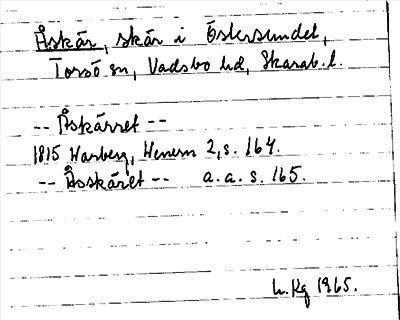 Åskär, skär i Östersundet,
Torsö sn, Vadsbo hd, Skarab. l.
-- Åskärret --
1815 Warberg, Wenern 2, s. 164.
-- Åsskäret -- a. a. s. 165.
Kg 1965.